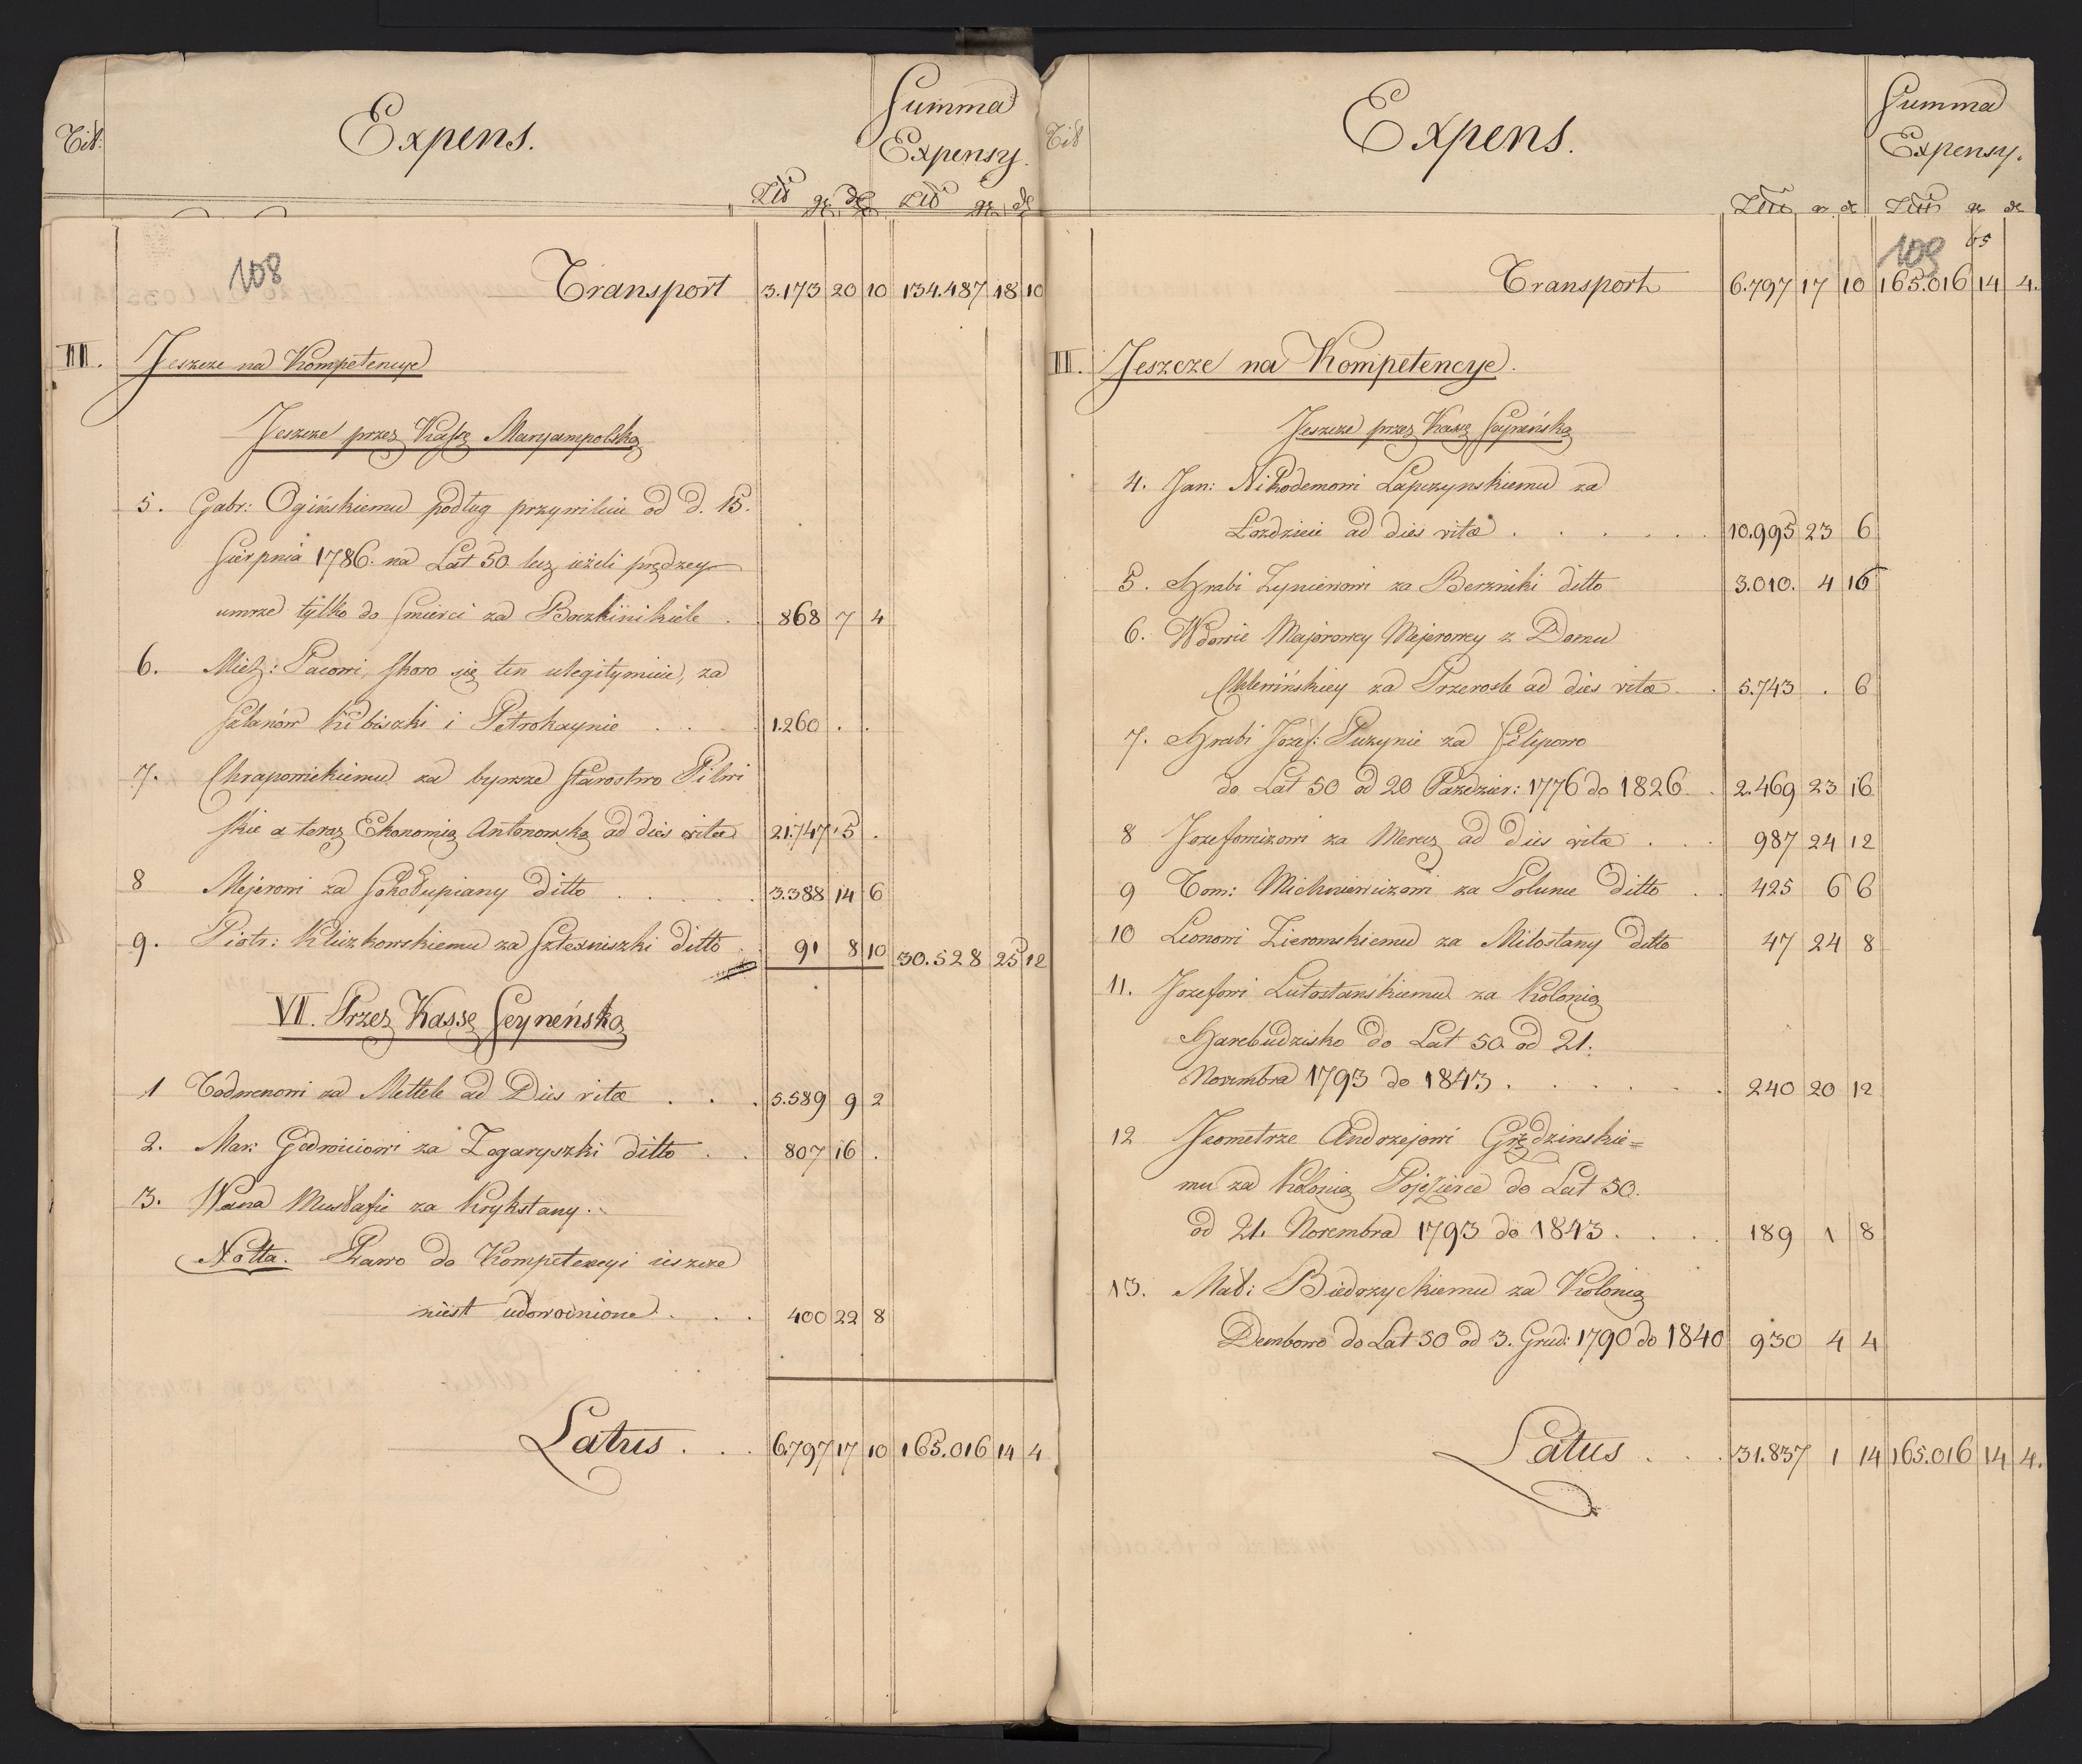 Tit:
Expens.
Summa
Expensy.
Złł gr d Złł gr d
108
Transport 3.173 20 10 134.487 18 10
III. Jeszcze na Kompetencye
Jeszcze przez Kassę Maryampolską
5. Gabr: Ogińskiemu podług przywileiu od d. 15.
Sierpnia 1786. na Lat 50 lecz ieżeli prędzey
umrze tylko do śmierci za Boczkinikiele . 868 7 4
6. Mich: Pacowi, skoro się ten ulegitymuie, za
Szłanów Kibiszki i Petrokaynie . . . 1.260 . .
7. Chrapowickiemu za bywsze Starostwo Pilwi
skie a teraz Ekonomią Antonowską ad dies vitae 21.747 15 .
8 Mejerowi za Sokołupiany ditto . . . . . 3.388 14 6
9. Piotr: Kluzkowskiemu za Szłexniszki ditto . 91 8 10 30.528 25 12
VII. Przez Kassę Seyneńską
1 Todwenowi za Mettele ad Dies vitae . . . 5.589 9 2
2. Mar: Giedroiciowi za Zogaryszki ditto . . 807 16 .
3. Wana Mustafie za Krykstany.
Notta. Prawo do Kompetencyi ieszcze
niest udowodnione . . . 400 22 8
Latus . . . 6.797 17 10 165.016 14 4
Tit
Expens.
Summa
Expensy.
Złł gr d Złł gr d
109 65
Transport 6.797 17 10 165.016 14 4.
III. Jeszcze na Kompetencye.
Jeszcze przez Kassę Seyneńską
4. Jan: Nikodemowi Łapczynskiemu za
Łozdzieie ad dies vitae . . . . . 10.995 23 6
5. Hrabi Zyniewowi za Berzniki ditto 3.010. 4 16
6. Wdowie Majorowey Mejerowey z Domu
Chlewińskiey za Przerosle ad dies vitae . . 5.743 . 6
7. Hrabi Jozef: Puzynie za Filipowo
do Lat 50 od 20 Paździer: 1776 do 1826 . 2.469 23 16
8 Jozefowizowi za Merecz ad dies vitae . . . 987 24 12
9 Tom: Michniewiczowi za Polunce ditto . . 425 6 6
10 Leonowi Zieromskiemu za Milostany ditto 47 24 8
11. Jozefowi Lutostańskiemu za Kolonią
Harcbudzisko do Lat 50 od 21.
Novembra 1793 do 1843 . . . . . . 240 20 12
12 Jeometrze Andrzejowi Grzędzinskie=
mu za Kolonią Pojezierce do Lat 50.
od 21. Novembra 1793 do 1843 . . . . 189 1 8
13. Mat: Biedrzyckiemu za Kolonią
Dembowo do Lat 50 od 3. Grud: 1790 do 1840 930 4 4
Latus . . . 31.837 1 14 165.016 14 4.